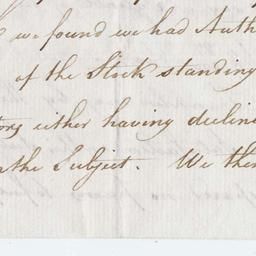 we found we had Auth
of the Stock standing
tors either having declin
the Subject. We then